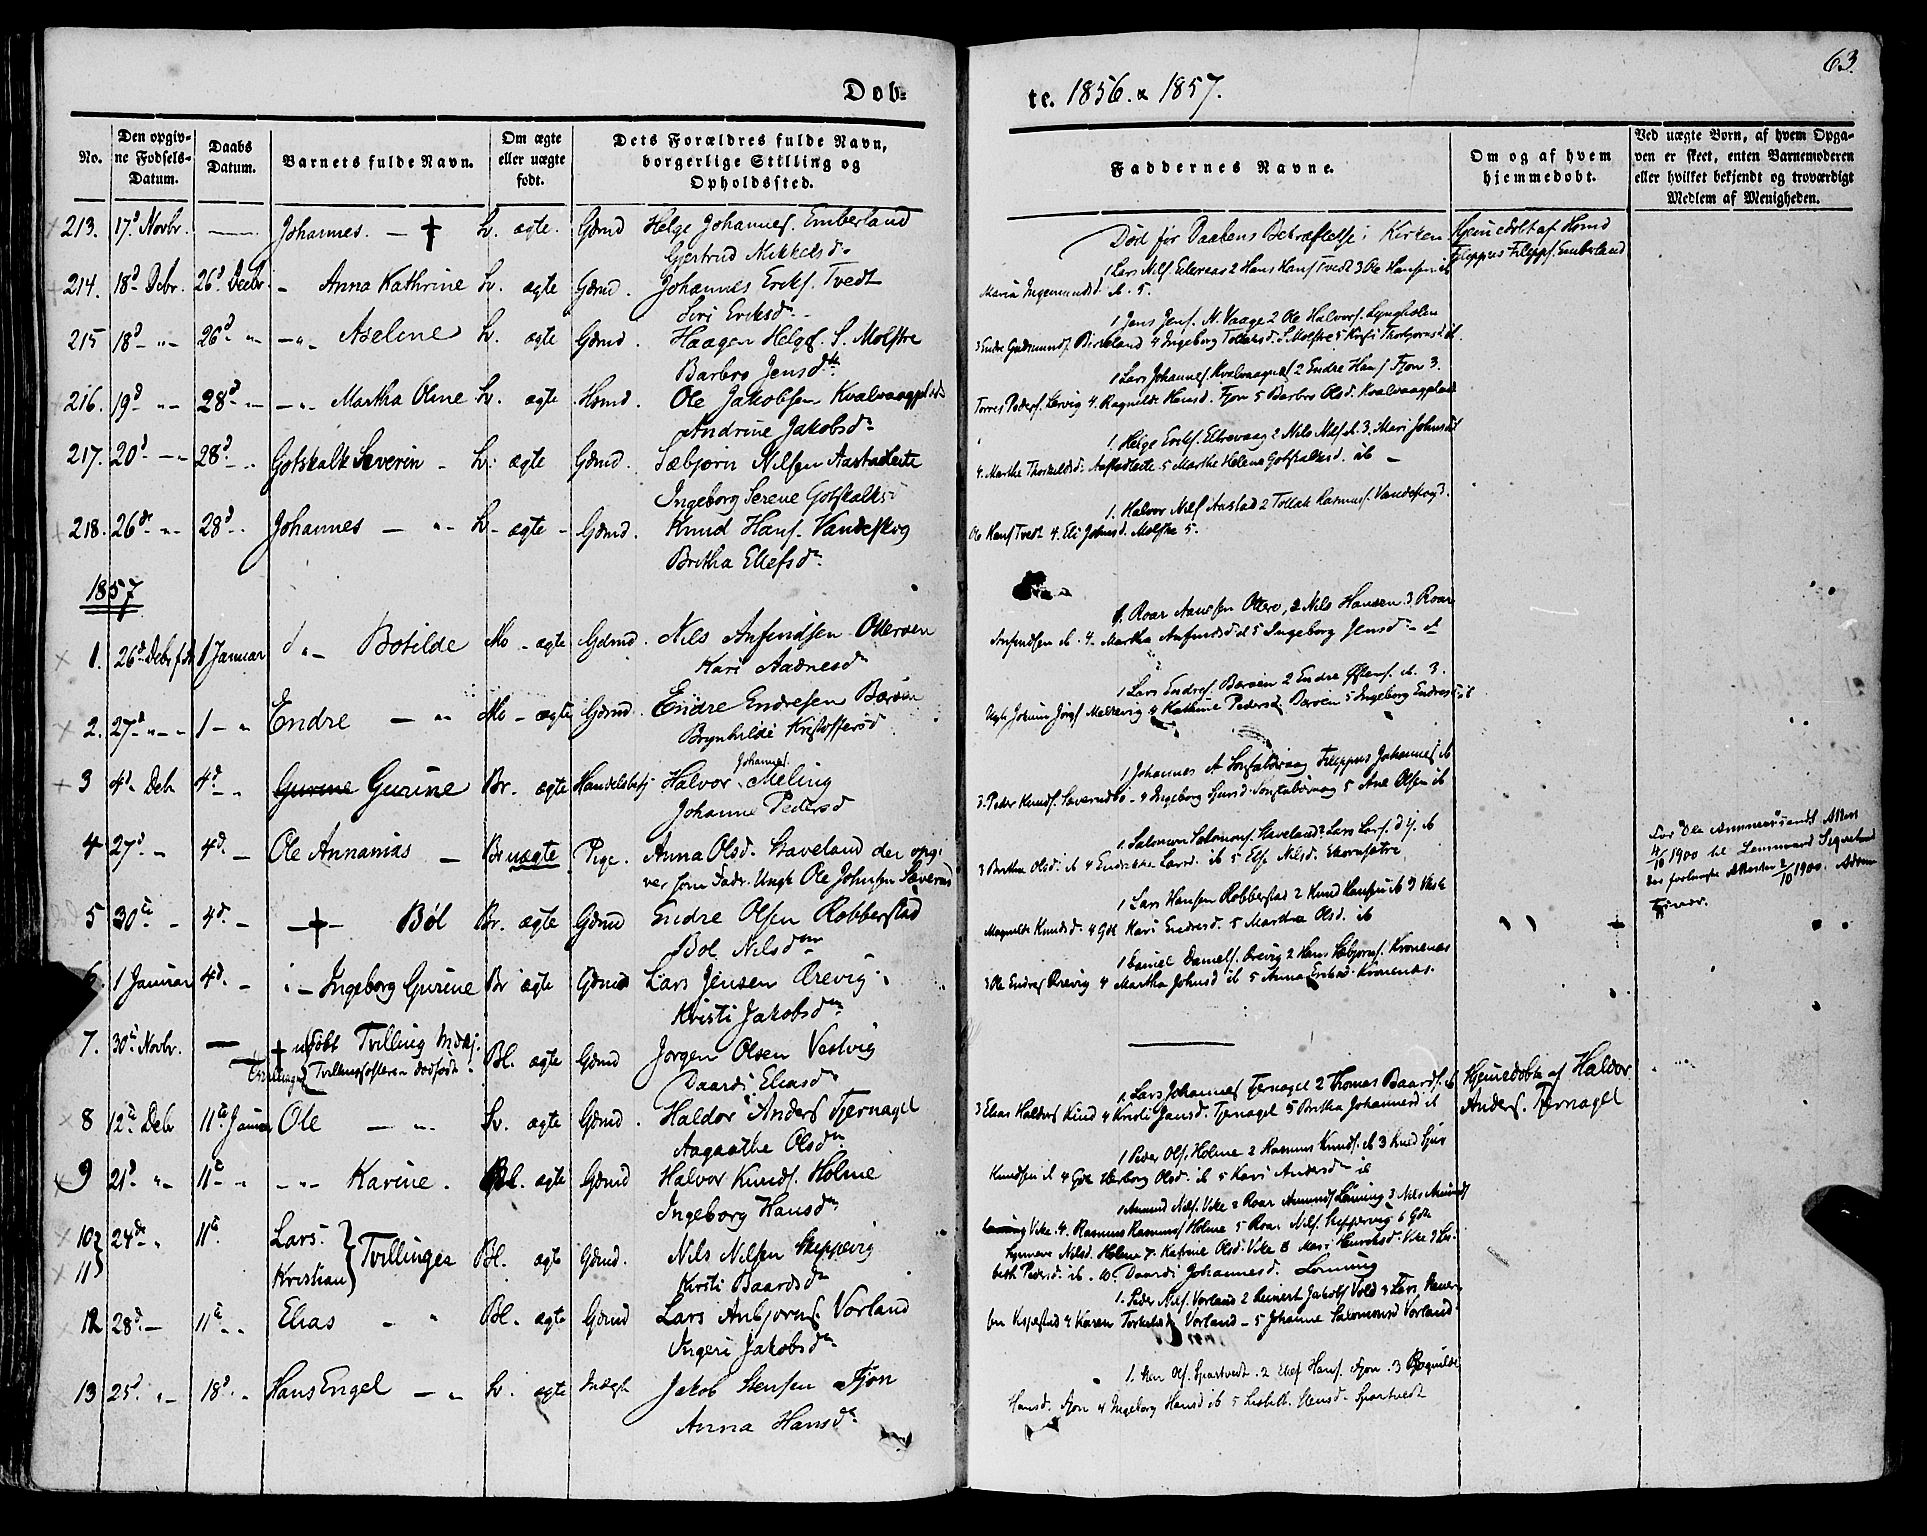 63.
Dob-
te. 1856. & 1857.
No.
Den opgiv-
ne Fodsels-
Datum.
Daabs
Datum.
Barnets fulde Navn.
Om ægte
eller uægte
født.
Dets Forældres fulde Navn,
borgerlige Stilling og
Opholdssted.
Faddernes Navne.
Om og af hvem
hjemmedobt.
Ved uægte Born, af hvem Opga-
ven er skeet, enten Barnemoderen
eller hvilket bekjendt og troværdigt
Medlem af Menigheden.
213. 17d Novbr. — Johannes. — † Lv. ægte. Gdmd Helge Johannes. Emberland
Gjertrud Mikkelsd.
Død før Daabens Bekræftelse i Kirken Hjemedøbt af Hsmd
Filippus Filipps. Emberland
214. 18d Debr. 26d Decbr. - Anna Kathrine Lv. ægte Gdmd. Johannes Eriks. Tvedt
Siri Eriksd.
1 Lars Nils. 2 Hans Hans Tvedt 3 Ole Hansen ib
Maria Ingemundsd. ib. 5.
215 18d - „ - 26d „ - „ - Aselene Lv. ægte Gdmd. Haagen Helges. S. Molstre
Barbro Jensdtr.
1 Jens Jens. N. Vaage 2 Ole Halvors. Lyngholm
3 Endre Gudmunds. Birkeland 4 Ingeborg S. Molstre 5 Kirsti Thorbjørnsd ib.
216. 19d - „ - 28d - „ - „ - Martha Oline Lv. ægte Hsmd. Ole Jakobsen Kvalvaagpladsen
Andrine Jakobsd.
1 Lars Johannes. Kvalvaagnes 2 Endre Hans Fjon 3.
Torres Peders. Lervig 4. Ragnilde Hansd. Fjon 5 Barbro Olsd. Kvalvaagplads
217. 20d - „ - 28d - „ Gotskalk Severin - Lv. ægte Gdmd. Sæbjørn Nilsen Aastadleite
Ingeborg Serene Gotskalksd
1. Helge Eriks. Eltravaag 2 Nils Nils ib. 3. Mari Johnsd ib
4. Marthe Thorkildsd. Aastadleite 5 Marthe Helene Gotskalksd. ib -
218. 26de - „ - 28d - Johannes — „ - Lv - ægte - Gdmd. Knud Hans. Vandeskog
Britha Ellefsdr
1. Halvor Nils Aastad 2 Tollak Rasmus. Vandeskog.
Ole Hans Tvedt 4. Eli Johnsd. Molstre 5.
1857
1. 26d Debr f. Ar 1 Januar d „ - Botilde Mo - ægte Gdmd. Nils Anfindsen Otterøen
Kari Aadnesd
1. Roar Aanesen Otterø, 2 Nils Hansen 3 Roar
Anfindsen ib. 4. Martha Anfindsd ib 5 Ingeborg Jensd - ib
2. 27d - „ - 1 - „ Endre — „ - Mo - ægte Gdmd. Endre Endresen Børøen
Brynhilde Kristoffersd
1 Lars Endres. Børøen 2 Endre ib. 3.
4 Kathrine Pedersd. Børøen 5 Ingeborg Endresd ib
3 4d Debr 4d - „ Gurine Gurine Br. ægte Handelsbetj Halvor Johannes. Meling
Johanne Pedersd
1 Johannes Filippus Johannes ib
3. Peder Knuds. 4 Ingeborg 5 Ane Olsen ib
4 27d „ 4d. - Ole Annanias - Br uægte Pige. Anna Olsd. Staveland der opgi-
ver som Fadr. Ungk Ole Johnsen
1 Salomon Salomons. Staveland 2 Lars Lars. ib
3 Britha Olsd. ib 4 Larsd. ib 5 Else Nilsd.
4/10 1900 2/10 1900.
5 30te - 4d. - - † - Bøl Br. ægte Gdmd Endre Olsen Robberstad
Bol Nilsdtr
1 Lars Hansen Robberstad 2 Knud Hansen ib 3
Magnilde Knudsd. 4 Gdk Kari Endresd. 5 Martha Olsd. ib
6. 1 Januar 4d. - - Ingeborg Gurene Br ægte Gdmd Lars Jensen Ørevig.
Kristi Jakobsdr
1 Daniel Daniels. Ørevig 2 Hans Sæbjørns. Kronenæs
3 Ole Endres Ørevig 4 Martha Johnsd ib 5 Anna Eriksd. Kronenæs.
7. 30te Novbr. — † udøbt Tvilling
Tvillinger Tvillingsøsteren dødfødt. Bl. ægte Gdmd Jørgen Olsen Vestvig
Daardi Eliasd
8 12te Debr 11te Januar Ole — „ - Lv. ægte Gdmd. Haldor Anders Tjernagel
Aagaathe Olsdr
1. Lars Johannes Tjernagel 2 Thomas Baards. ib
3 Elias Haldors Kind 4 Kristi Jansd. Tjernagel 5 Britha Johannesd ib
Hjemedøbt af Haldor
Anders. Tjernagel
9 21d „ - 11te - „ - „ - Karine. Bl. ægte Gdmd Halvor Knuds. Holme
Ingeborg Hansdr
1 Peder Ols. Holme 2 Rasmus Knuds. ib 3 Knud
Knudsen ib 4 Gdk Herborg Olsd. ib 5 Kari Andersd ib
10 24de - „ 11te. Lars.
11 Kristian Tvillinger Bl. ægte Gdmd. Nils Nilsen Skippevig
Kirsti Baardsdr
1 Amund Nils. Vike 2 Roar Amunds Lonning 3 Nils Amunds
Lonning Vike 4. Rasmus Rasmus Holme 5 Roar Nils. Skippevig 6 Gdk
Nilsd. Holme 7. Katrine Olsd. Vike 8 Mari Vike 9 Lis-
beth Pedersd. ib. 10. Daardi Johannesd. Lonning
12 28d - 11te - „ Elias - „ Bl. ægte Gdmd Lars Anbjørns. Vorland
Ingeri Jakobsdr
1. Peder Nils. Vorland 2 Reinert Jakobs Vold 3
4 Karen Torkelsd. Vorland - 5 Johanne Salomonsd Vorland
13 25d. „ - 18d. „ Hans Engel — „ Lv. ægte Jakob Stensen Fjon
Anna Hansdr
1. Sten Ols. Spartvedt. 2 Elef Hans. Fjon. 3 Ragnilde
Hansd. Fjon 4 Ingeborg Hansd ib 5 Lisbeth Stensd. Spartvedt